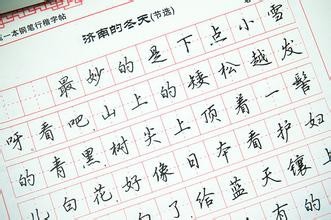 一本钢笔行楷字帖
济南的冬天(节选)
最妙的是下点小雪
呀.看吧.山上的矮松越发
的青黑,树尖上顶着一髻
白花,好像日本看护妇
了,给蓝天镶上